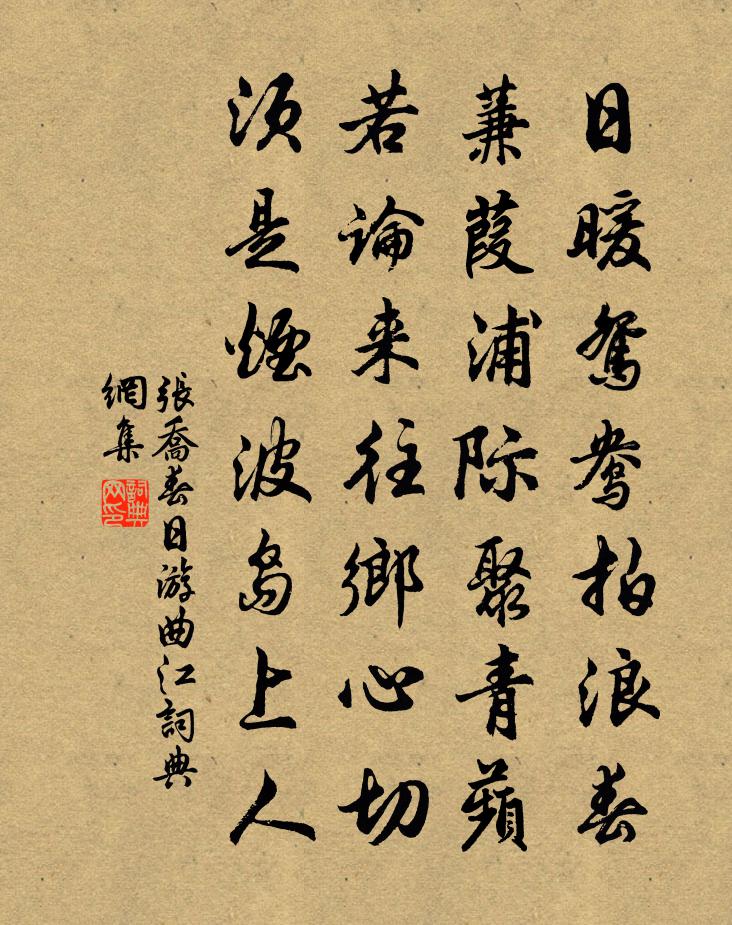 日暖鴛鴦拍浪春
蒹葭浦际聚青蘋
若論来往鄉心切
須是煙波島上人
張喬春日游曲江詞典
網集
詞典
网印